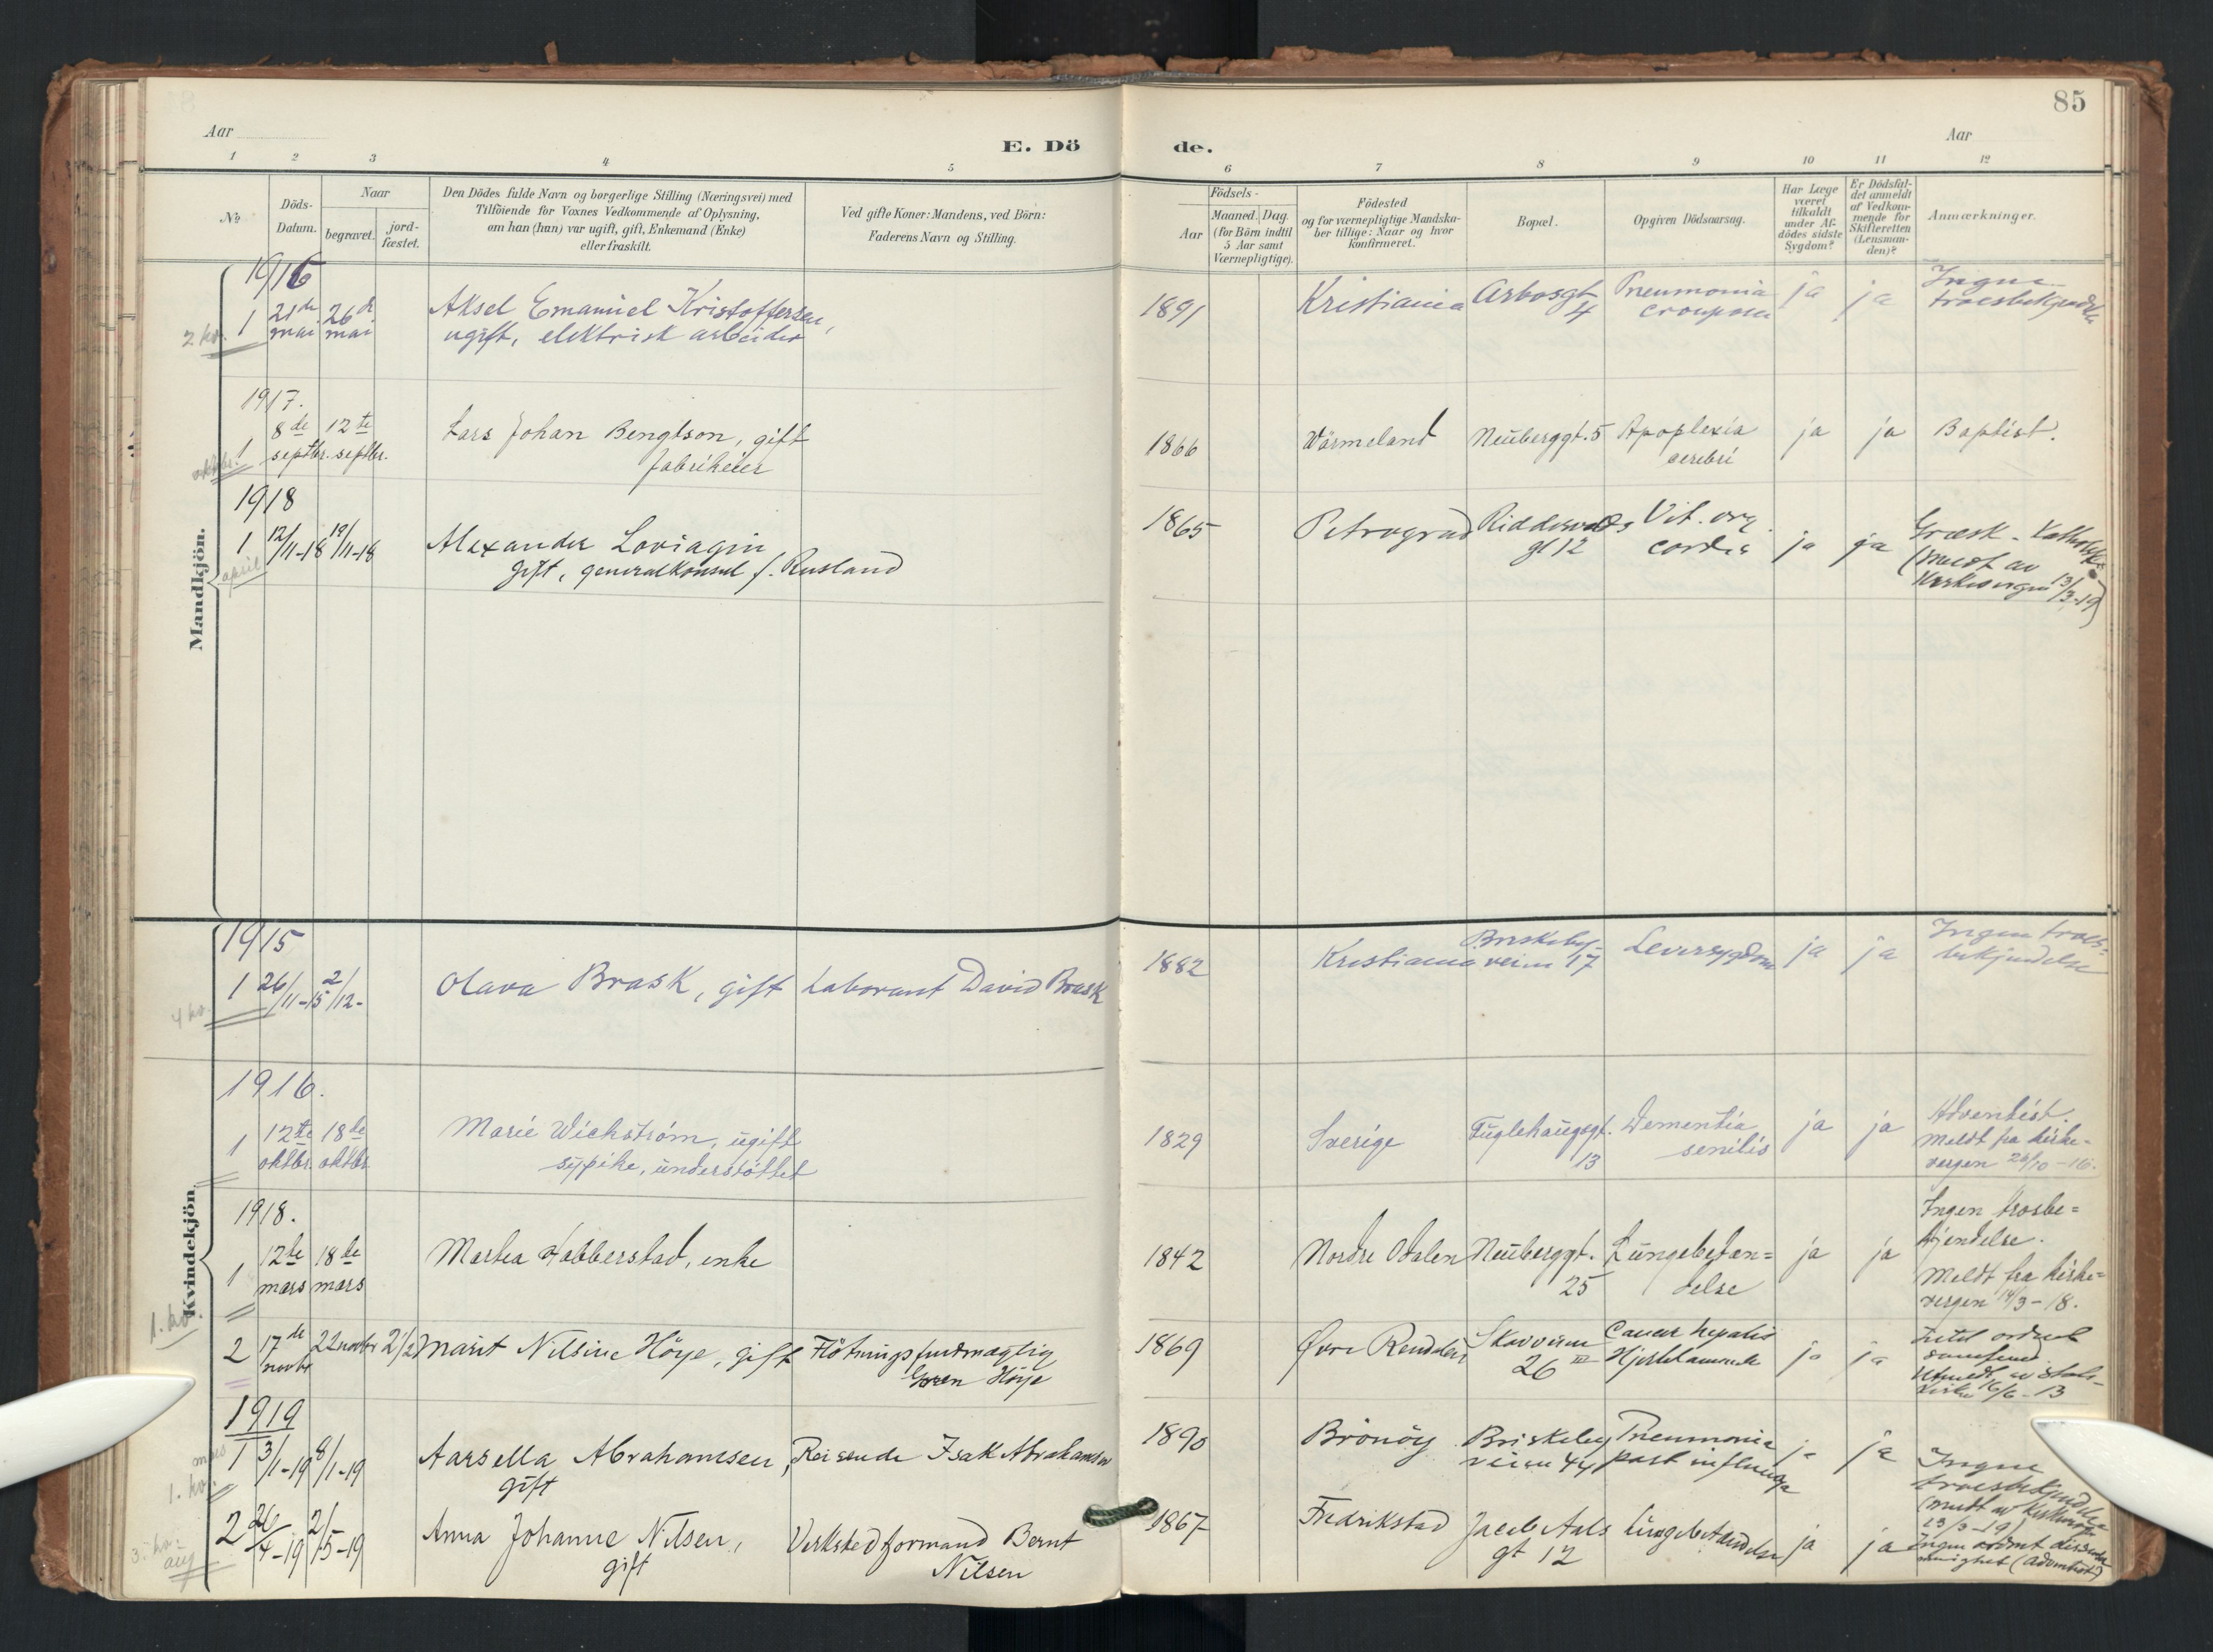 85
Aar
E. Dö
de.
Aar
1 2 3 4 5 6 7 8 9 10 11 12
№
Döds-
Datum.
Naar
begravet.
jord-
fæstet.
Den Dödes fulde Navn og borgerlige Stilling (Næringsvei) med
Tilföiende for Voxnes Vedkommende af Oplysning,
om han (hun) var ugift, gift, Enkemand (Enke)
eller fraskilt.
Ved gifte Koner: Mandens, ved Börn:
Faderens Navn og Stilling.
Födsels-
Aar
Maaned. Dag.
(for Börn indtil
5 Aar samt
Værnepligtige).
Födested
og for værnepligtige Mandska-
ber tillige: Naar og hvor
Konfirmeret.
Bopæl.
Opgiven Dödsaarsag.
Har Læge
været
tilkaldt
under Af-
dödes sidste
Sygdom?
Er Dödsfal-
det anmeldt
af Vedkom-
mende for
Skifteretten
(Lensman-
den)?
Anmærkninger.
Mandkjön.
1916
2 kv.
1
21de
mai
26de
mai
Aksel Emanuel Kristoffersen,
ugift, elektrisk arbeider
1891
Kristiania
Arbosgt
4
Pneumonia
crouposa
ja
ja
Ingen
troesbekjendelse
1917.
oktbr.
1
8de
septbr.
12te
septbr.
Lars Johan Bengtson, gift
fabrikeier
1866
Värmeland
Neuberggt. 5
Apoplexia
cerebri
ja
ja
Baptist.
1918
april
1
12/11-18
19/11-18
Alexander Loviagin
gift, generalkonsul f. Rusland
1865
Petrograd
Riddervolds
gt 12
Vit. org.
cordis
ja
ja
Græsk-Katholsk
(meldt av
Kirkevergen 13/3-19)
Kvindekjön.
1915
4 kv.
1
26/11-15
2/12-
Olava Brask, gift
Laborant David Brask
1882
Kristiania
Briskeby-
veien 17
Leversygdom
ja
ja
Ingen troes-
bekjendelse
1916.
1
12te
oktbr.
18de
oktbr.
Marie Wickström, ugift
sypike, understöttet
1829
Sverige
Fuglehaugsgt.
13
Dementia
senilis
ja
ja
Adventist.
Meldt fra kirke-
vergen 26/10-16.
1918.
1. kv.
1
12te
mars
18de
mars
Marthea Habberstad, enke
1842
Nordre Odalen
Neuberggt.
25
Lungebetæn=
delse
ja
ja
Ingen trosbe=
kjendelse.
Meldt fra kirke=
vergen 14/3-18.
2
17de
novbr
22 novbr
Marit Nilsine Höye, gift
Flötningsfuldmægtig
Höye
1869
Øvre Rendalen
26 III
Cancer hepatis
ja
ja
Utmeldt av Stats-
kirken 16/6-13
1919
mars
1. kv.
1
3/1-19
8/1-19
Aarsella Abrahamsen,
gift
Reisende Isak Abrahamsen
1890
Brönöy
Briskeby
veien 44
Pneumonia
post influenza
ja
ja
Ingen
troesbekjendelse
(meldt av Kirkevergen
13/3-19)
3. kv.
aug
2
26/4-19
2/5-19
Anna Johanne Nilsen,
gift
Verkstedformand Bernt
Nilsen
1867
Fredrikstad
Jacob Aals
gt 12
Lungebetændelse
ja
ja
Ingen ordnet dissenter
menighet (Adventist)